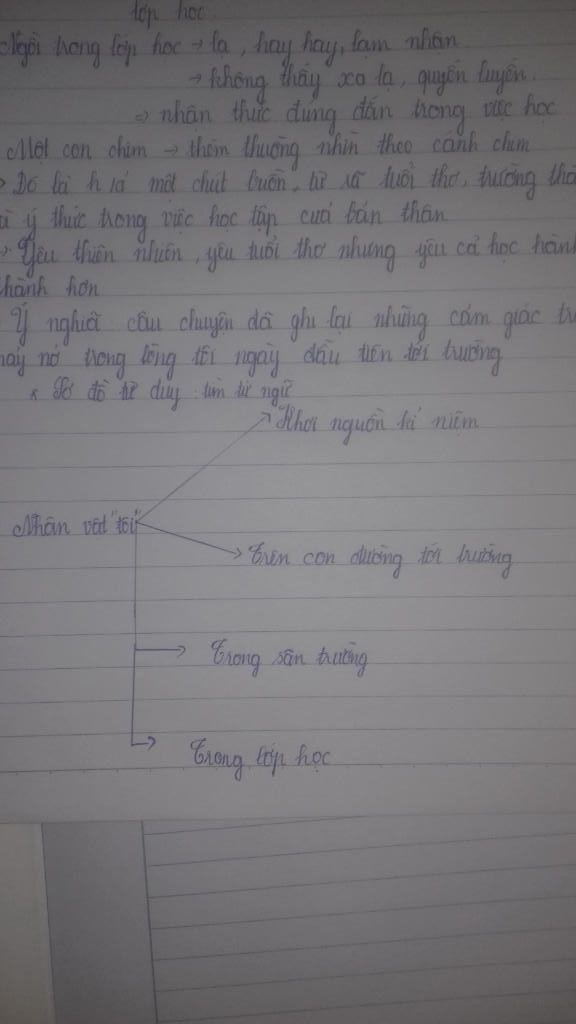 lớp học
Ngồi trong lớp học → lạ, hay hay, lạm nhận
→ không thấy xa lạ, quyến luyến.
⇒ nhận thức đúng đắn trong việc học
Một con chim → thèm thuồng nhìn theo cánh chim
> Đó là h/a một chút buồn, từ rã tuổi thơ, trưởng thà
ý thức trong việc học tập cuả bản thân
→ Yêu thiên nhiên, yêu tuổi thơ nhưng yêu cả học hành
hành hơn
Ý nghiã câu chuyện đã ghi lại những cảm giác tr
nảy nở trong lòng tôi ngày đầu tiên tới trường
* Sơ đồ tư duy tìm từ ngữ
Khơi nguồn kỉ niệm
Nhân vật "tôi"
Trên con đường tới trường
Trong sân trường
Trong lớp học